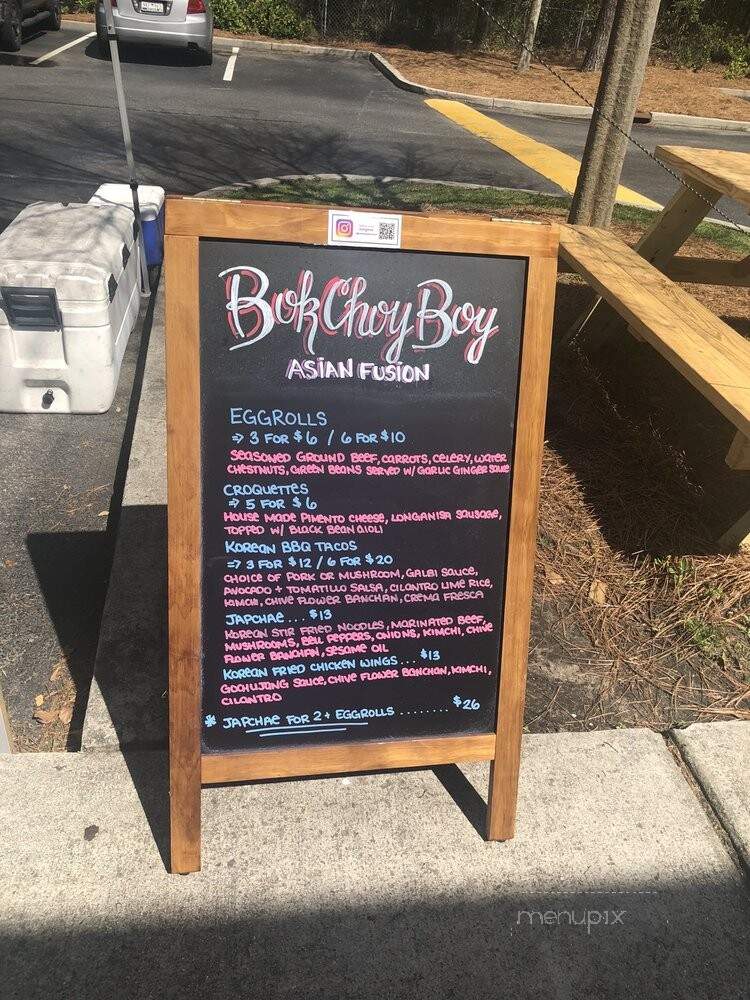 Bok Choy Boy
ASIAN FUSION
EGGROLLS
⇒ 3 FOR $6 / 6 FOR $10
SEASONED GROUND BEEF, CARROTS, CELERY, WATER
CHESTNUTS, GREEN BEANS SERVED W/ GARLIC GINGER SAUCE
CROQUETTES
⇒ 5 FOR $6
HOUSE MADE PIMENTO CHEESE, LONGANISA SAUSAGE,
TOPPED W/ BLACK BEAN AIOLI
KOREAN BBQ TACOS
⇒ 3 FOR $12 / 6 FOR $20
CHOICE OF PORK OR MUSHROOM, GALBI SAUCE,
AVOCADO + TOMATILLO SALSA, CILANTRO LIME RICE,
KIMCHI, CHIVE FLOWER BANCHAN, CREMA FRESCA
JAPCHAE... $13
KOREAN STIR FRIED NOODLES, MARINATED BEEF,
MUSHROOMS, BELL PEPPERS, ONIONS, KIMCHI, CHIVE
FLOWER BANCHAN, SESAME OIL
KOREAN FRIED CHICKEN WINGS... $13
GOCHUJANG SAUCE, CHIVE FLOWER BANCHAN, KIMCHI,
CILANTRO
* JAPCHAE FOR 2 + EGGROLLS ........ $26
menupix